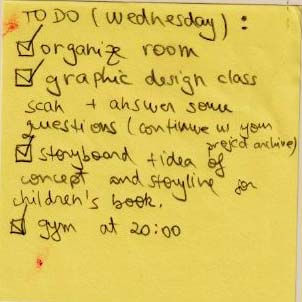 TO DO (Wednesday):
organize room
graphic design class
scan + answer some
questions (continue w your
project archive)
storyboard + idea of
concept and storyline for
children's book.
gym at 20:00